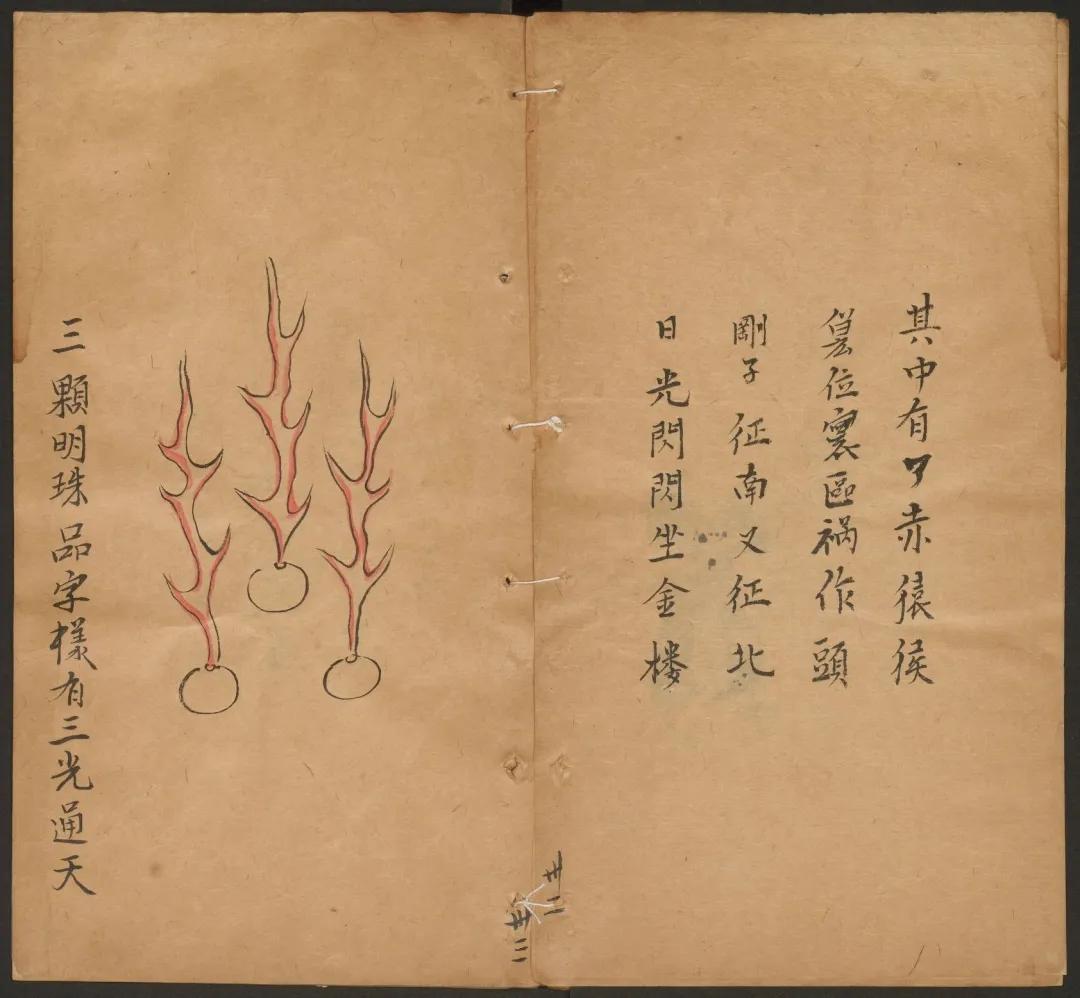 其中有了赤猿猴
位寰區禍作頭
剛子征南又征北
日光閃閃坐金楼
卅二
三顆明珠品字樣有三光通天
卅三